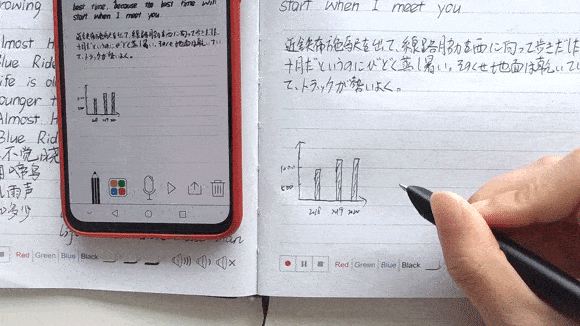 rowing
Almost H
Blue Rid
ife is ol
ounger t
Almost H
Blue Rid
不觉晓
啼鸟
风雨声
多少
Red Green Blue Black
best time, because the best time will
start when I meet you
近鉄布施駅を出て、線路脇を西に向って歩きだした
十月だというのにひどく蒸し暑い。そのくせ地面は乾いてい
て、トラックが勢いよく。
2018 2019 2020
start when I meet you
近鉄布施駅を出て、線路脇を西に向って歩きだした
十月だというのにひどく蒸し暑い。そのくせ地面は乾いてい
て、トラックが勢いよく。
1000
500
2018 2019 2020
Red Green Blue Black